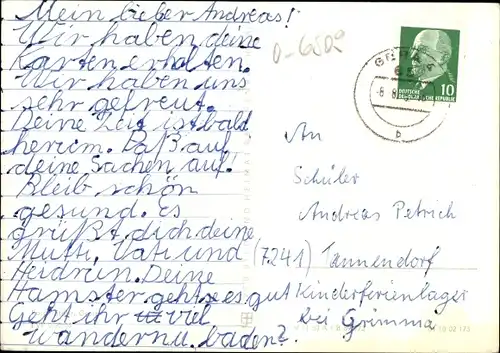 Mein lieber Andreas!
Wir haben deine
Karten erhalten.
Wir haben uns
sehr gefreut.
Deine Zeit ist bald
herum. Paß auf
deine Sachen auf!
Bleib schön
gesund. Es
grüßt dich deine
Mutti, Vati und
Heidrun. Deine
Hamster geht es gut
Geht ihr viel
wandern u. baden?
GERA
-8
b
10
DEUTSCHE
DEMOKRATISCHE REPUBLIK
An
Schüler
Andreas Petrich
(7241) Tannendorf
Kinderferienlager
bei Grimma